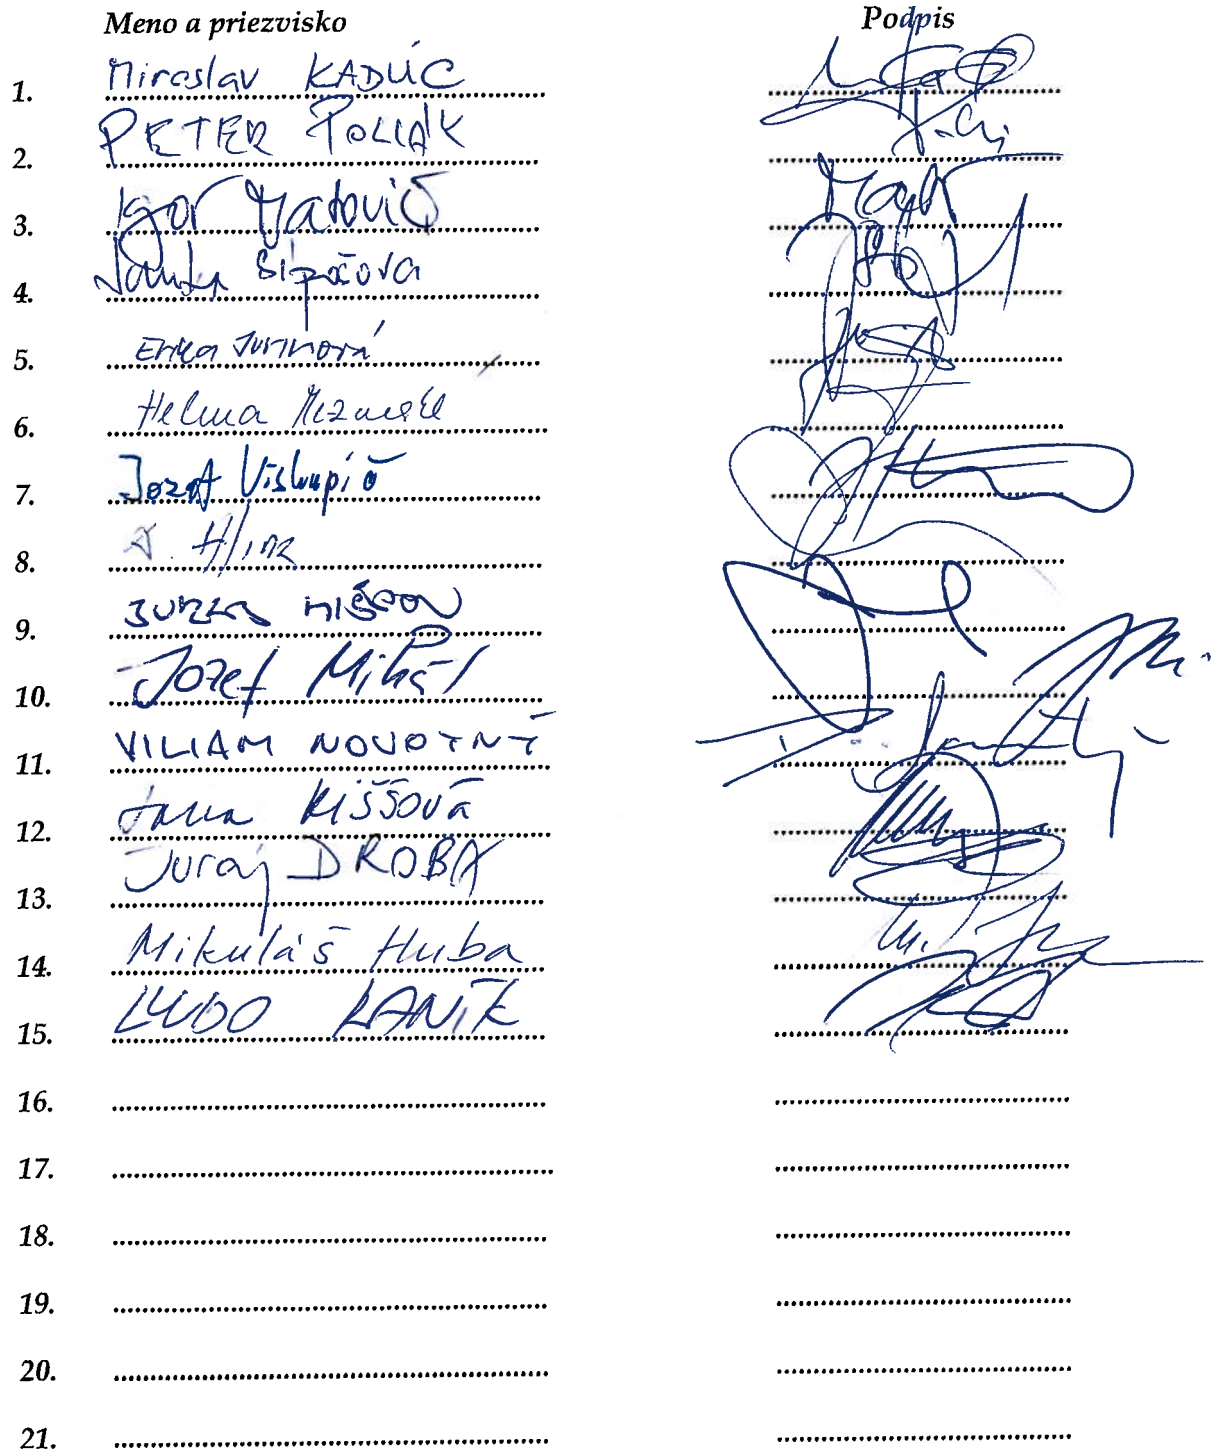 Meno a priezvisko Podpis
1. Miroslav KADÚC
2. PETER POLLÁK
3. Igor Matovič
4. Janka Šípošová
5. Erika Jurinová
6. Helena Mezenská
7. Jozef Viskupič
8. A. Hlina
9. JURAJ MIŠKOV
10. Jozef Mihál
11. VILIAM NOVOTNÝ
12. Jana KIŠŠOVÁ
13. Juraj DROBA
14. Mikuláš Huba
15. ĽUDO KANÍK
16.
17.
18.
19.
20.
21.